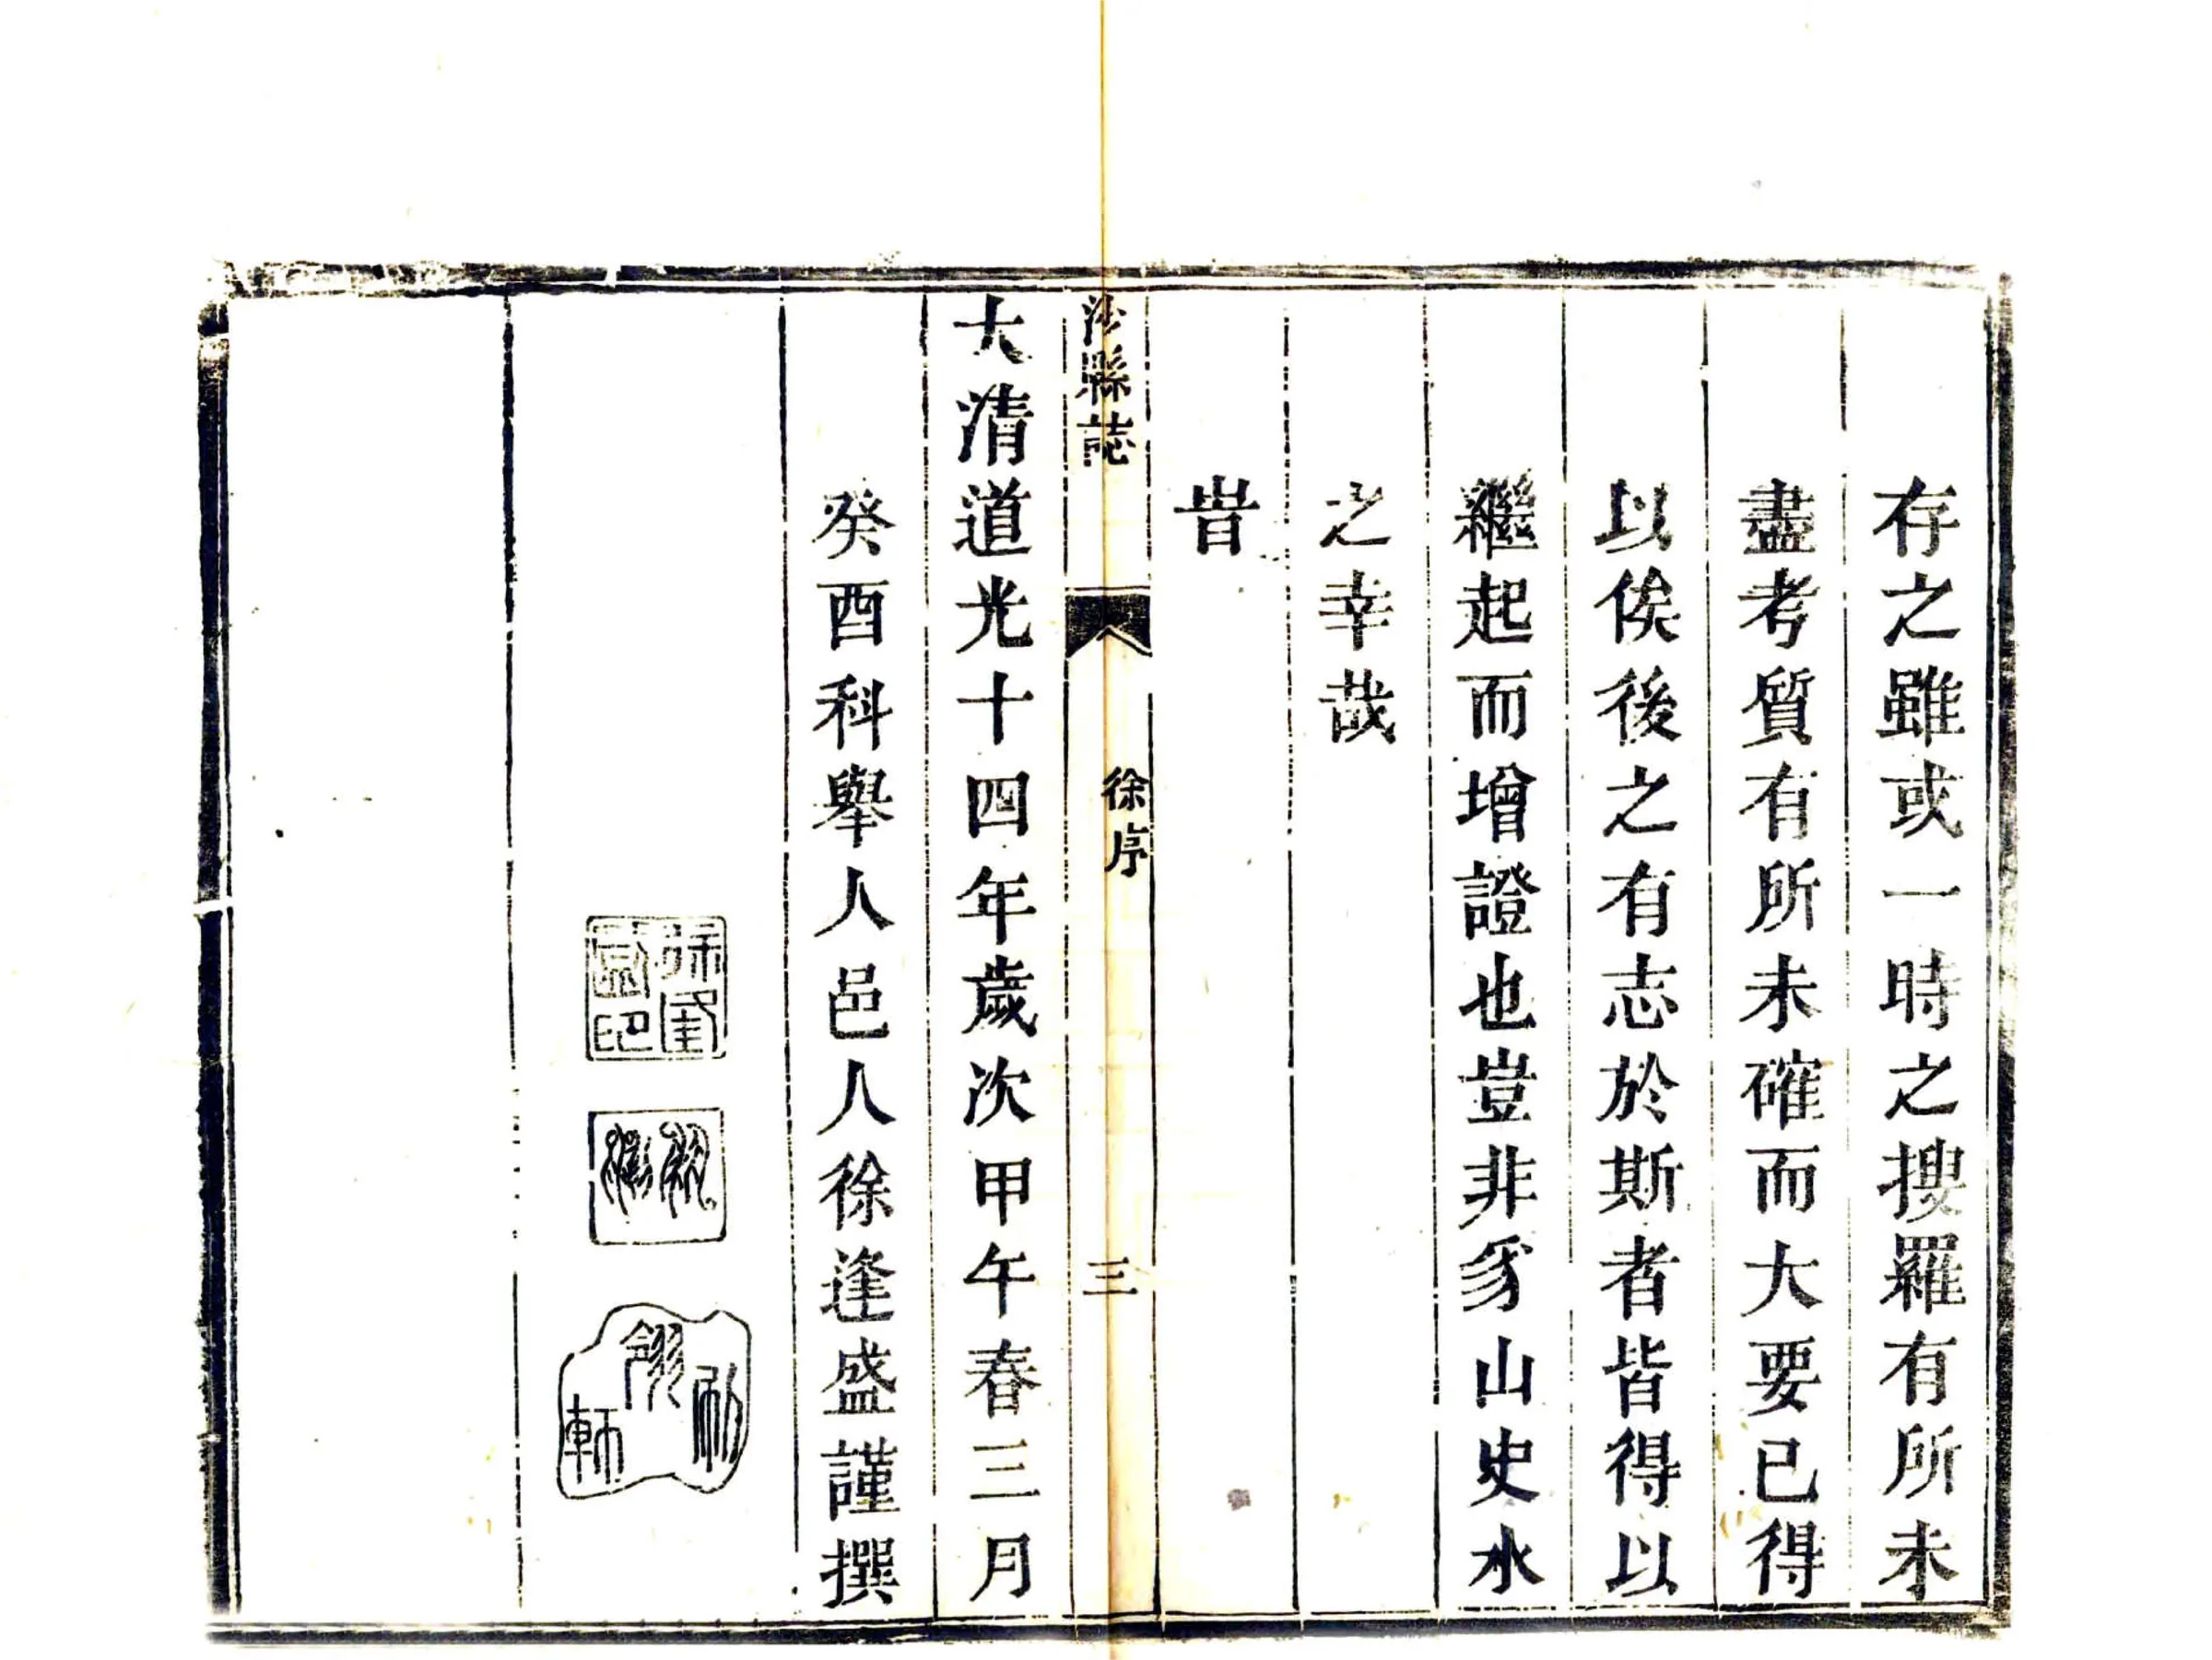 存之雖或一時之搜羅有所未
盡考質有所未確而大要已得
以俟後之有志於斯者皆得以
繼起而增證也豈非豸山史水
之幸哉
旹
沙縣誌
徐序
三
大清道光十四年歲次甲午春三月
癸酉科舉人邑人徐逢盛謹撰